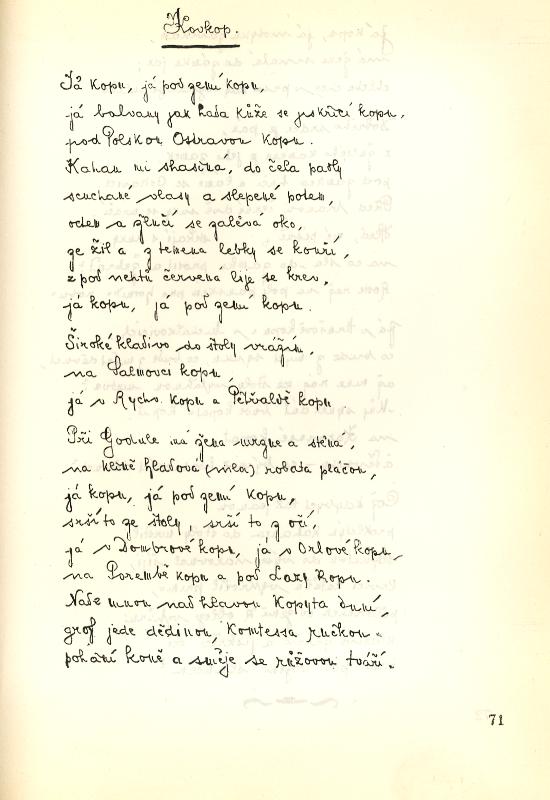 Kovkop.
Já kopu, já pod zemí kopu,
já balvany jak hada kůže se jiskřící kopu,
pod Polskou Ostravou kopu.
Kahan mi shasíná, do čela padly
scuchané vlasy a slepené potem,
octem a žlučí se zalévá oko,
ze žil a z temena lebky se kouří,
z pod nehtů červená lije se krev,
já kopu, já pod zemí kopu.
Široké kladivo do štoly vrážím,
na Salmovci kopu
já v Rychv. kopu a Pětvaldě kopu.
Při Godule má žena mrzne a sténá,
na klíně hladová (mila) robata pláčou,
já kopu, já pod zemí kopu,
srší to ze štoly, srší to z očí,
já v Dombrové kopu, já v Orlové kopu,
na Porembě kopu a pod Lazy kopu.
Nade mnou nad hlavou kopyta duní,
grof jede dědinou, komtessa ručkou
pohání koně a směje se růžovou tváří.
71